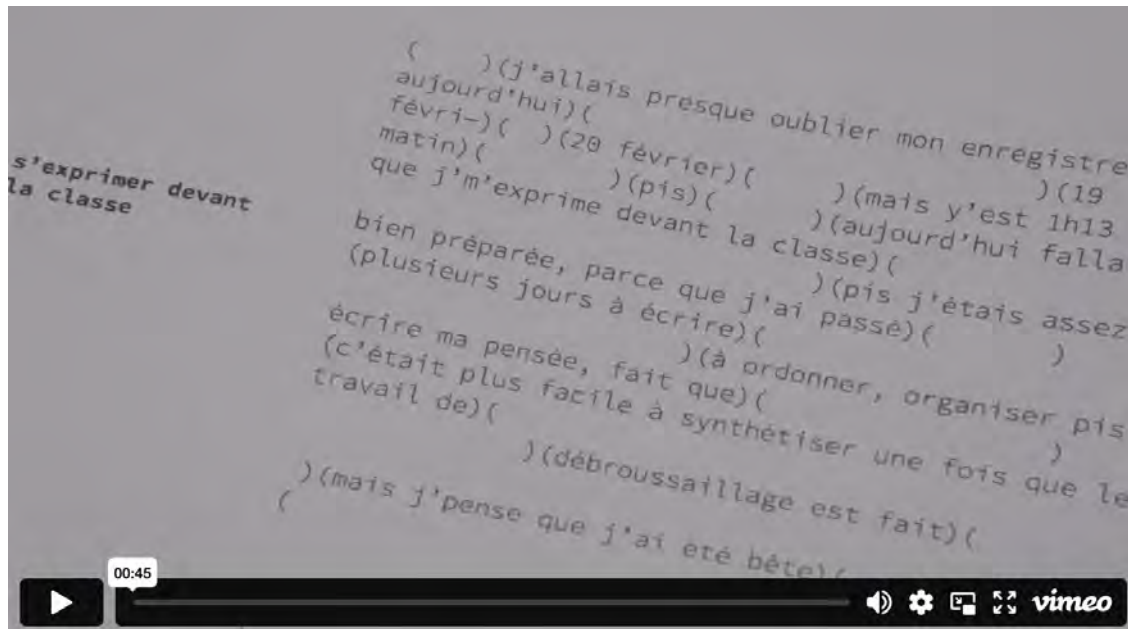 s'exprimer devant
la classe
(    )(j'allais presque oublier mon enregistre
aujourd'hui)(                    )(19
févri—)(  )(20 février)(      )(mais y'est 1h13
matin)(        )(pis)(      )(aujourd'hui falla
que j'm'exprime devant la classe)(
)(pis j'étais assez
bien préparée, parce que j'ai passé)(        )
(plusieurs jours à écrire)(
)(à ordonner, organiser pis
écrire ma pensée, fait que)(                )
(c'était plus facile à synthétiser une fois que le
travail de)(
)(débroussaillage est fait)(
)(mais j'pense que j'ai été bête)(
(
00:45
vimeo